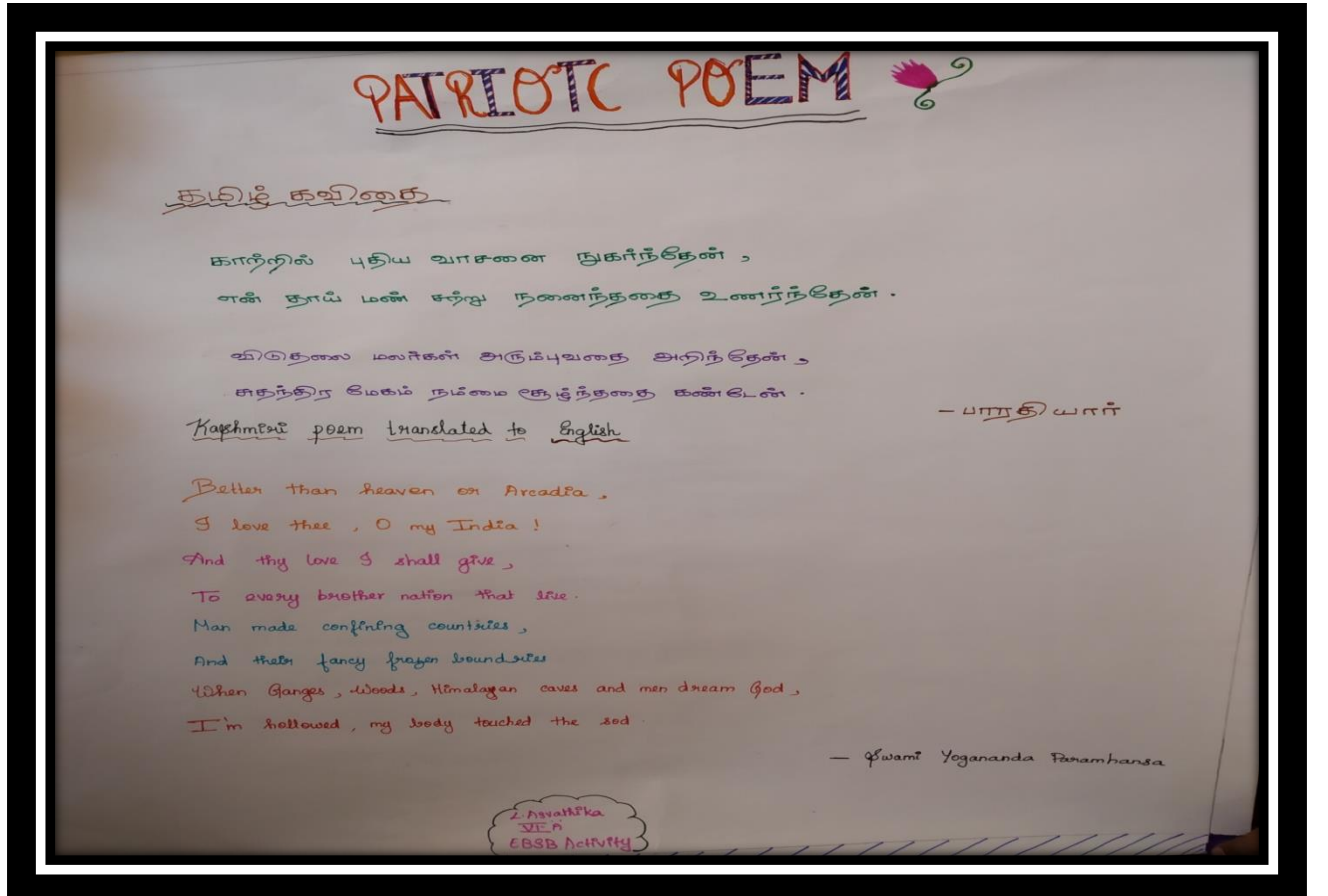 PATRIOTC POEM
தமிழ் கவிதை
காற்றில் புதிய வாசனை நுகர்ந்தேன் ,
என் தாய் மண் சற்று நனைந்ததை உணர்ந்தேன் .
விடுதலை மலர்கள் அரும்புவதை அறிந்தேன் ,
சுதந்திர மேகம் நம்மை சூழ்ந்ததை கண்டேன் .
- பாரதியார்
Kashmiri poem translated to English
Better than heaven or Arcadia ,
I love thee , O my India !
And thy love I shall give ,
To every brother nation that live .
Man made confining countries ,
And their fancy frozen boundries
When Ganges , Woods , Himalayan caves and men dream God ,
I'm hollowed , my body touched the sod .
- Swami Yogananda Paramhansa
L. Asvathika
VI-A
EBSB Activity